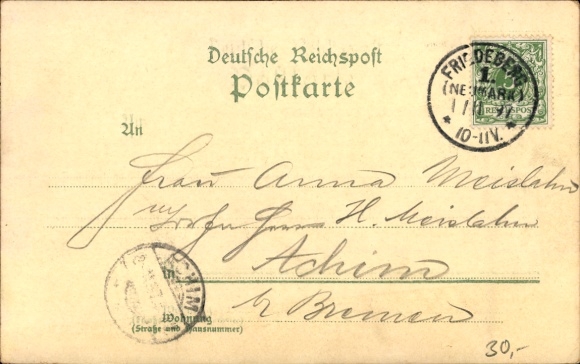 Deutsche Reichspost
Postkarte
FRIEDEBERG
1.
(NEUMARK)
97
* 10-11V. *
REICHSPOST
An
Frau Anna Meislahn
H. Meislahn
Achim
in
ACHIM
b/ Bremen
Wohnung
(Straße und Hausnummer)
30,-